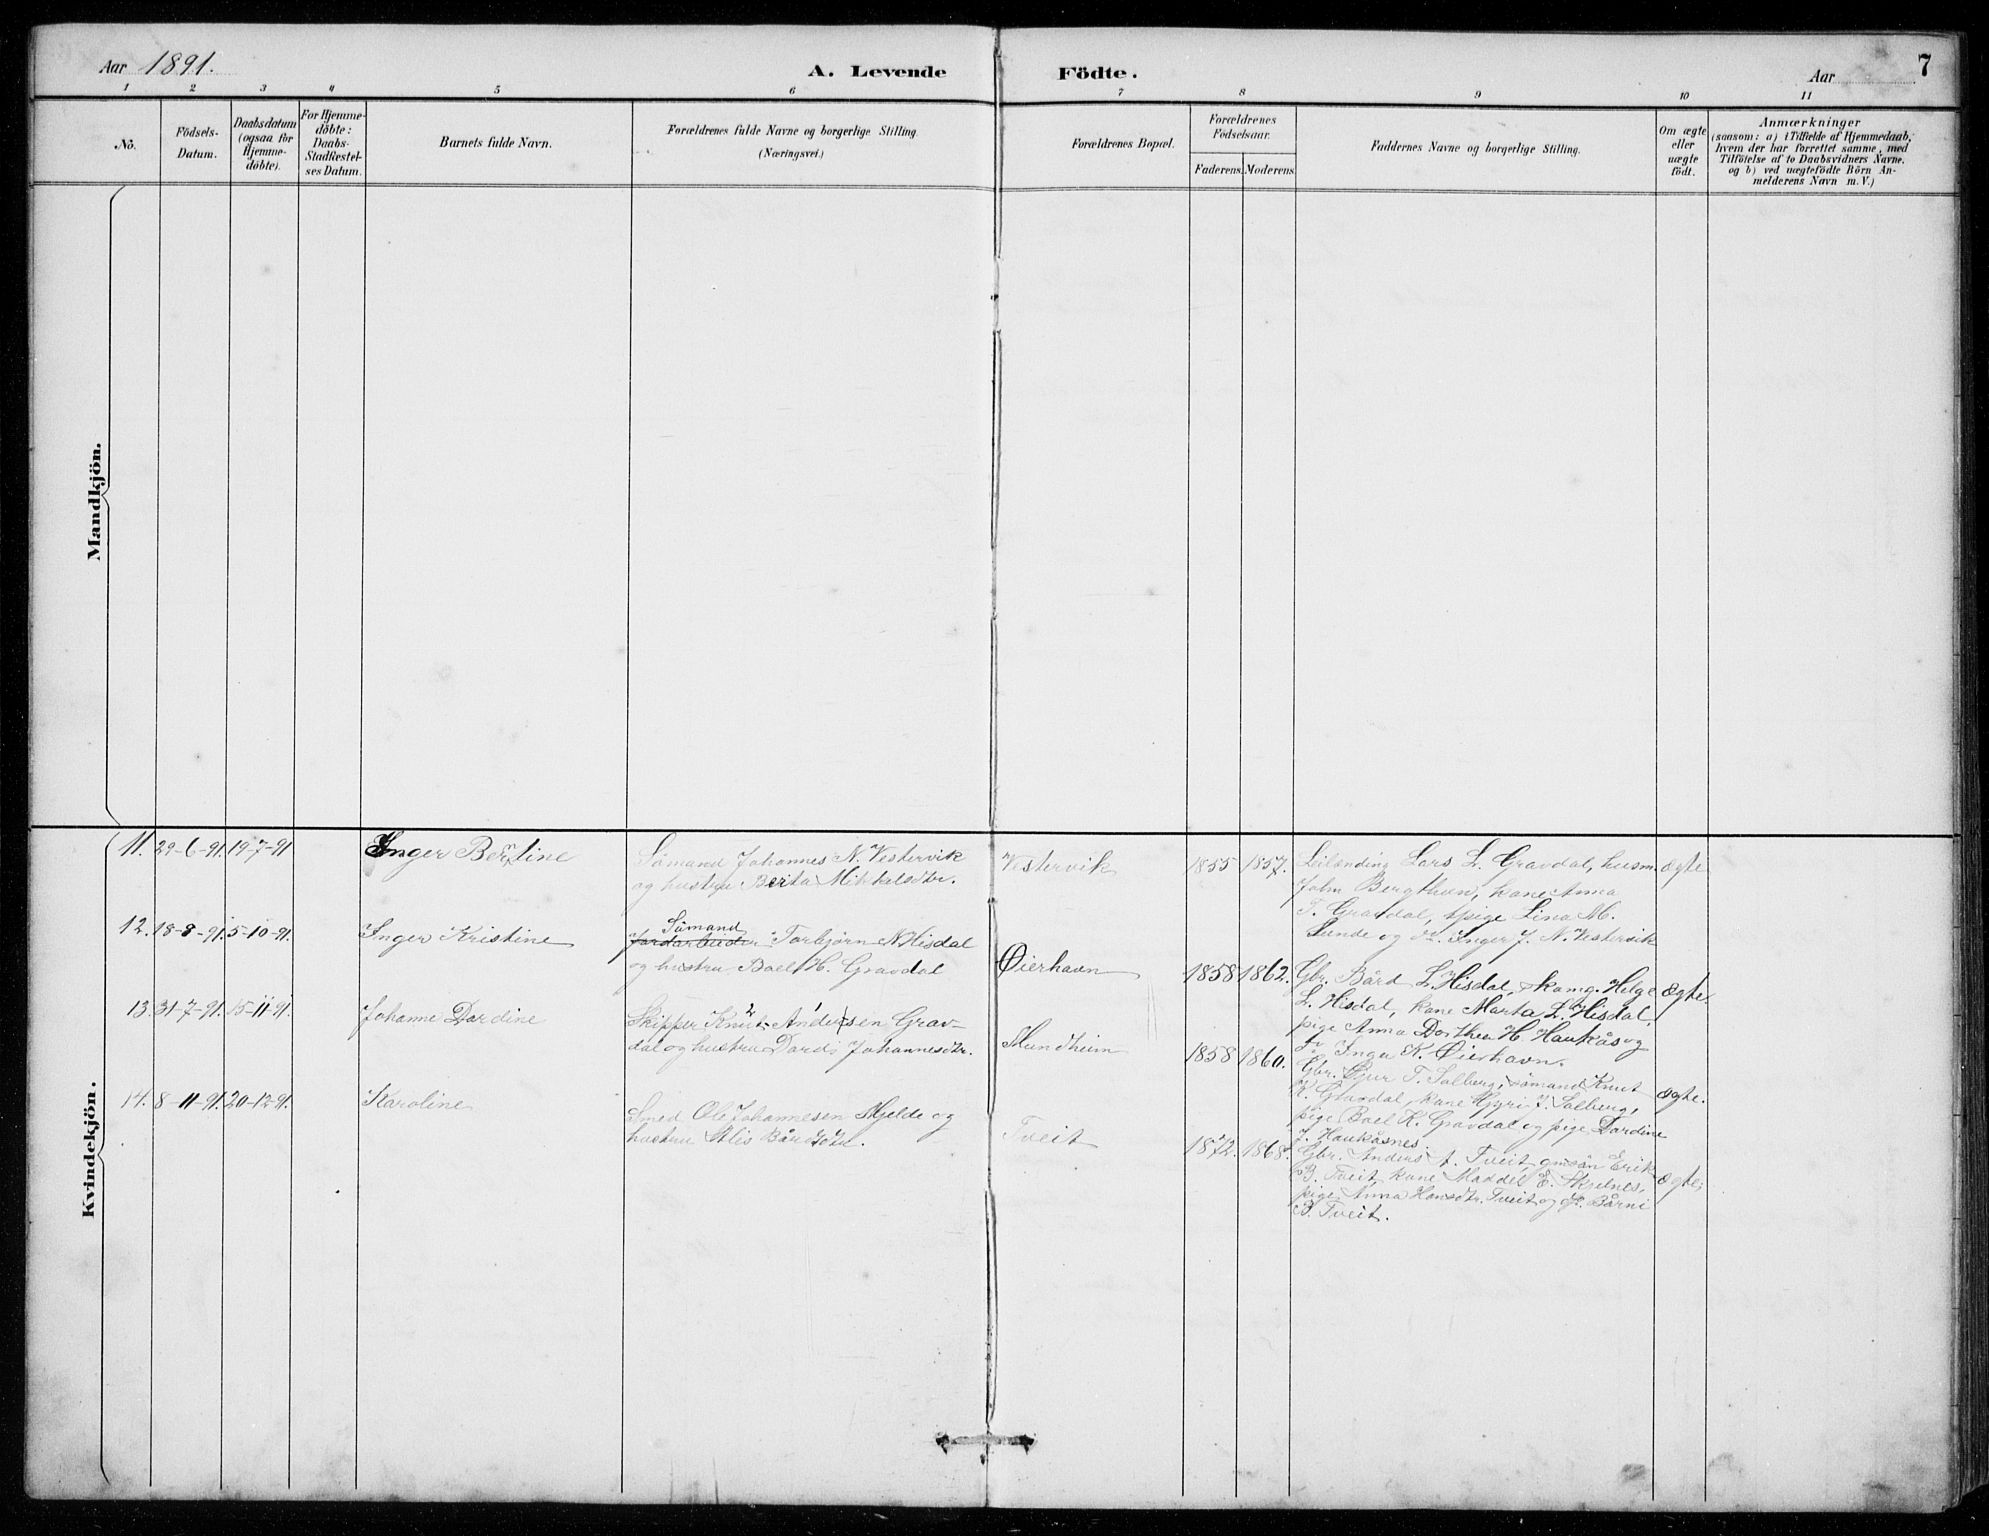 Aar 1891. A. Levende Födte. Aar 7
1 2 3 4 5 6 7 8 9 10 11
No.
Födsels-
Datum.
Daabsdatum
(ogsaa for
Hjemme-
döbte).
For Hjemme-
döbte:
Daabs-
Stadfæstel-
ses Datum.
Barnets fulde Navn.
Forældrenes fulde Navne og borgerlige Stilling.
(Næringsvei.)
Forældrenes Bopæl.
Forældrenes
Födselsaar.
Faderens. Moderens.
Faddernes Navne og borgerlige Stilling.
Om ægte
eller
uægte
födt.
Anmærkninger
(saasom: a) i Tilfælde af Hjemmedaab,
hvem der har forrettet samme, med
Tilföielse af to Daabsvidners Navne.
og b) ved uægtefödte Börn An-
melderens Navn m. V.)
Mandkjön.
Kvindekjön.
11. 29-6-91. 19-7-91 Inger Bertine
Sömand Johannes N. Vestervik
og hustru Berita Mikkelsdtr.
Vestervik 1855 1857.
Leilending Lars L. Gravdal, husm.
John Bergthun, kone Anna
T. Gravdal, pige Lina M.
Sunde og do. Inger J. N. Vestervik
ægte
12. 18-8-91. 5-10-91. Inger Kristine
Sömand
Jordarbeider Torbjörn N Hisdal
og hustru Bael H. Gravdal
Øierhavn 1858 1862.
Gbr. Bård L. Hisdal, skomg. Helge
L. Hisdal, kone Marta L. Hisdal,
pige Anna Dorthea H. Haukås og
do Inga K. Øierhavn.
Ægte
13. 31-7-91. 15-11-91. Johanne Dardine
Skipper Knut Andersen Grav-
dal og hustru Dardi Johannesdtr.
Mundheim 1858 1860.
Gbr. Gjur T. Solberg, sömand Knut
K. Gravdal, kone Gyri J. Solberg,
pige Bael K. Gravdal og pige Dardine
J. Haukåsnes.
ægte.
14. 8-11-91. 20-12-91. Karoline
Smed Ole Johannesen Mjelde og
hustru Alis Bårdsdtr.
Tveit 1872. 1868.
Gbr. Anders A. Tveit, gmsön Erik
B. Tveit, kone Maddel E. Skjelnes,
pige Anna Hansdtr. Tveit og do. Bårni
B. Tveit.
Ægte,